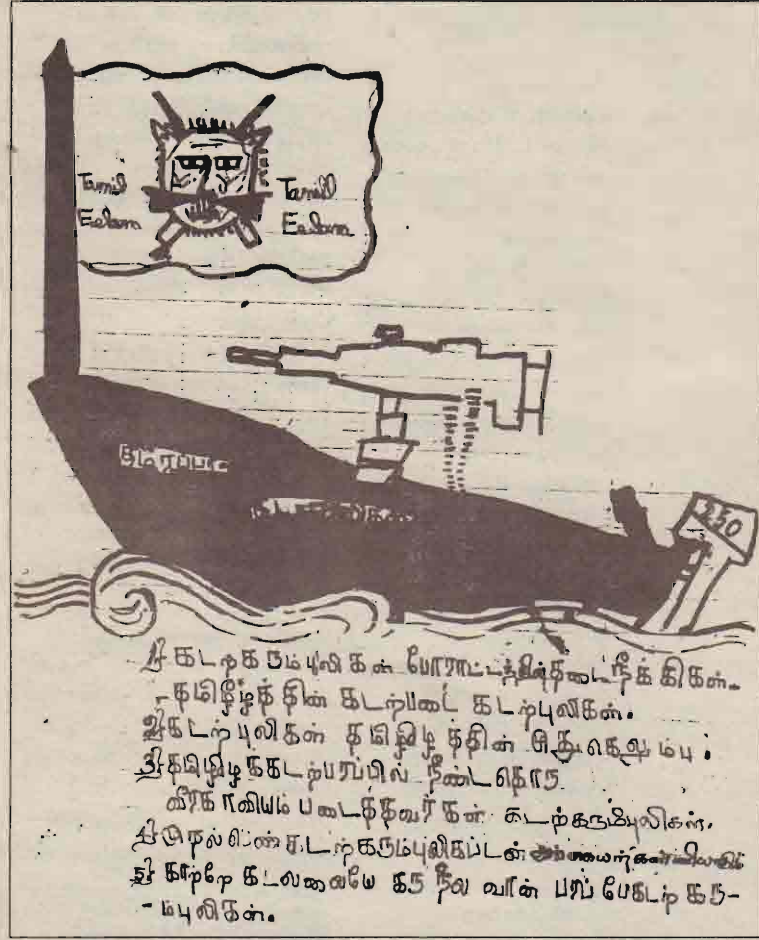 Tamil Tamil
Eelam Eelam
250
1) கடற்கரும்புலிகள் போராட்டத்தின் தடை நீக்கிகள்.
- தமிழீழத்தின் கடற்படை கடற்புலிகள்.
2) கடற்புலிகள் தமிழீழத்தின் முதுகெலும்பு.
3) தமிழீழக்கடற்பரப்பில் நீண்டதொரு
வீரகாவியம் படைத்தவர்கள் கடற்கரும்புலிகள்.
4) முதல் பெண் கடற்கரும்புலி கப்டன்
5) காற்றே கடலலையே கரு நீல வான் பரப்பே கடற் கரு-
- ம்புலிகள்.